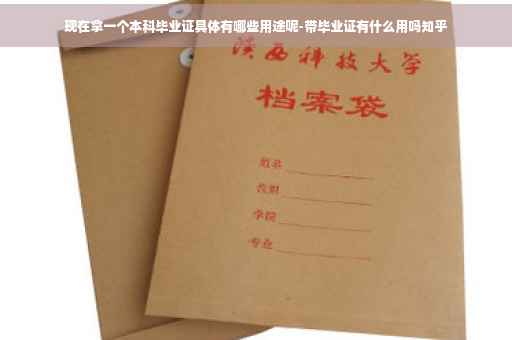 现在拿一个本科毕业证具体有哪些用途呢-带毕业证有什么用吗知乎
陕西科技大学
档案袋
姓名
学院
专业